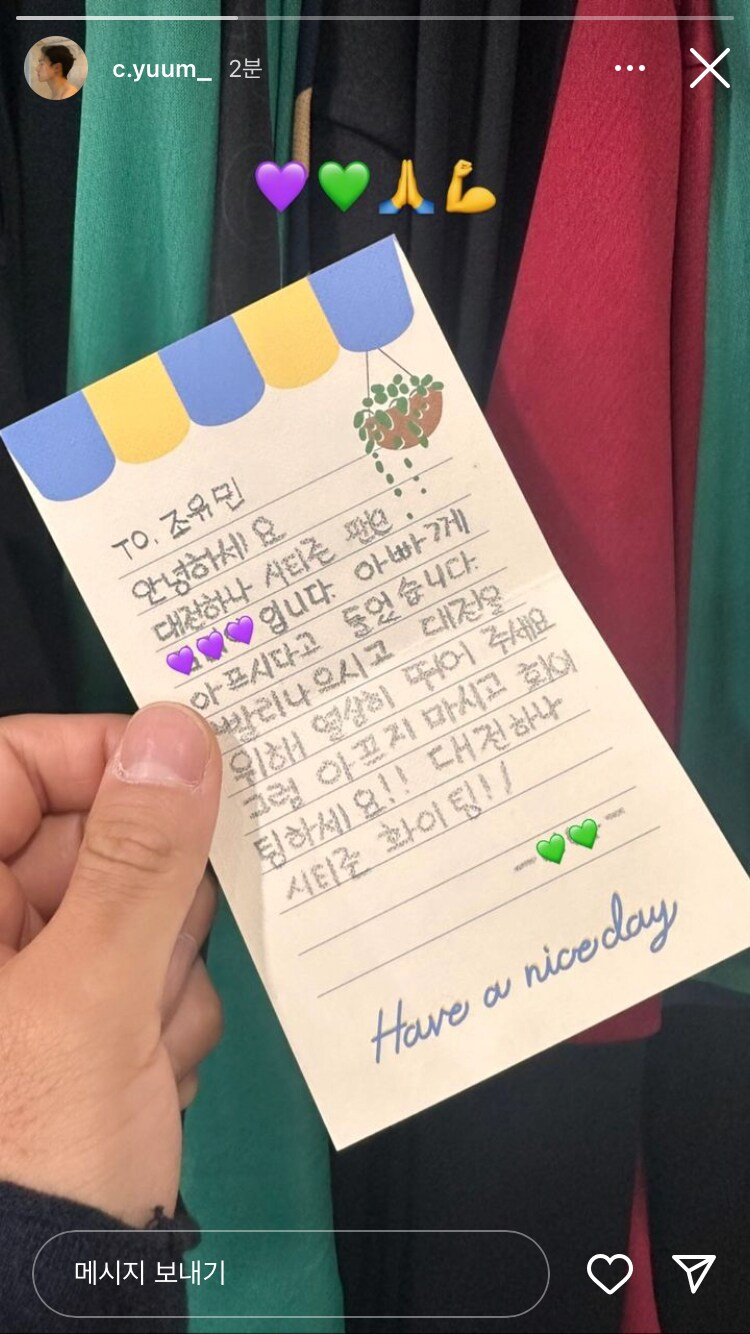 c.yuum_ 2분
TO. 조유민
안녕하세요
대전하나 시티즌 팬인
입니다. 아빠가께
아프시다고 들었습니다.
빨리나으시고 대전을
위해 열심히 뛰어 주세요
그럼 아프지 마시고 화이
팅하세요!! 대전하나
시티즌 화이팅!!
Have a nice day
메시지 보내기